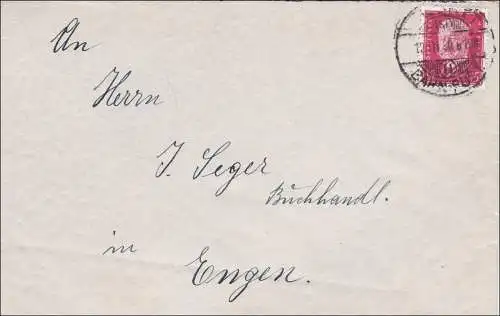 An
Herrn
J. Seger
Buchhandl.
in
Engen.
BAHNPOST